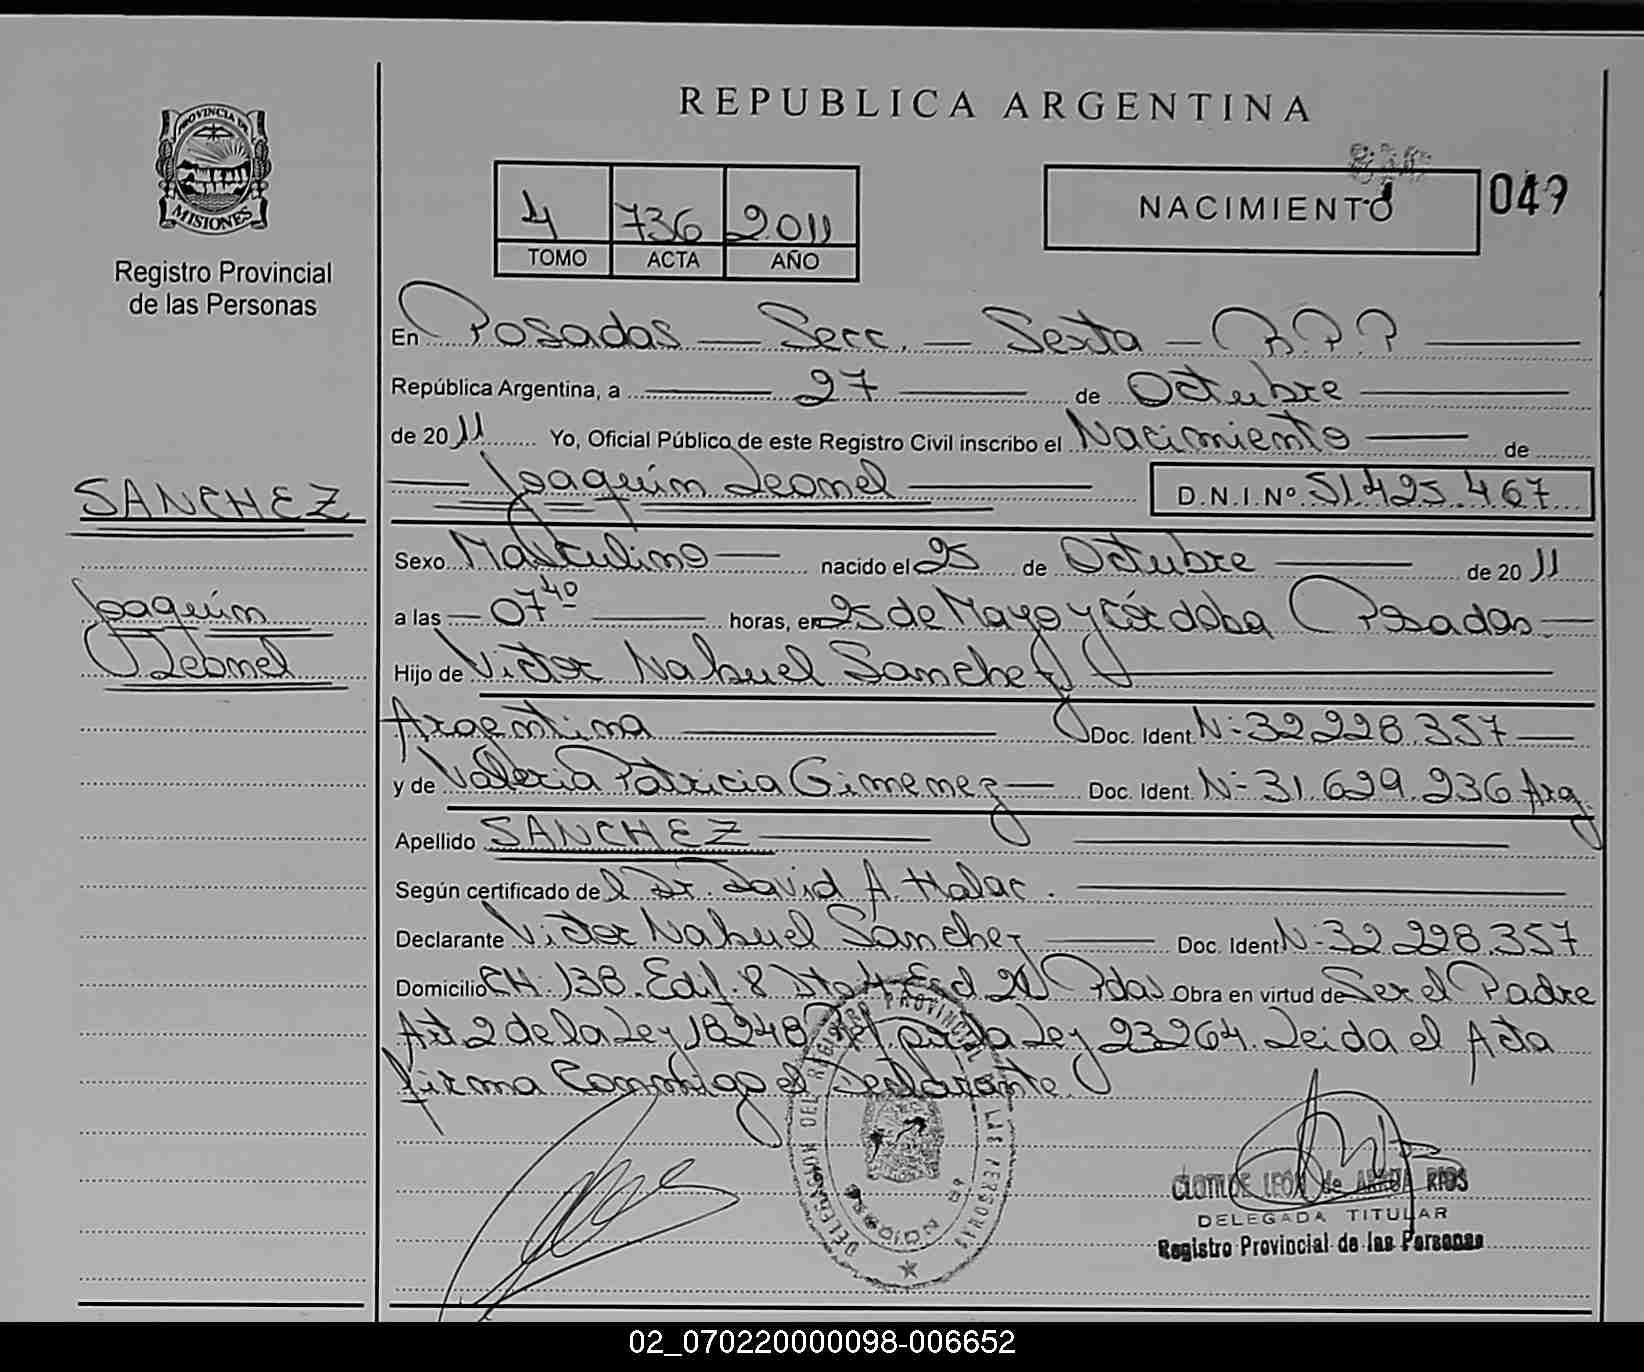 REPUBLICA ARGENTINA
PROVINCIA DE
MISIONES
Registro Provincial
de las Personas
4 736 2011
TOMO ACTA AÑO
NACIMIENTO 049
En Posadas — Secc. — Sexta — R.P.P
República Argentina, a 27 de Octubre
de 2011 Yo, Oficial Público de este Registro Civil inscribo el Nacimiento de
Joaquín Leonel D.N.I. Nº 51.425.467
SANCHEZ
Joaquín
Leonel
Sexo Masculino nacido el 25 de Octubre de 2011
a las 07 40 horas, en 25 de Mayo y Córdoba Posadas
Hijo de Victor Nahuel Sanchez
Argentina Doc. Ident. N- 32.228.357
y de Valeria Patricia Gimenez Doc. Ident. N- 31.629.236 Arg.
Apellido SANCHEZ
Según certificado del Dr. David A. Halac.
Declarante Victor Nahuel Sanchez Doc. Ident. N- 32.228.357
Domicilio CH. 138. Edif. 8 Dto 4 Pdas Obra en virtud de Ser el Padre
Art 2 de la Ley 18248 por la Ley 23264. Leida el Acta
firma Conmigo el Declarante.
DELEGACION DEL REGISTRO PROVINCIAL DE LAS PERSONAS
CLOTILDE LEÓN de RIOS
DELEGADA TITULAR
Registro Provincial de las Personas
02_070220000098-006652